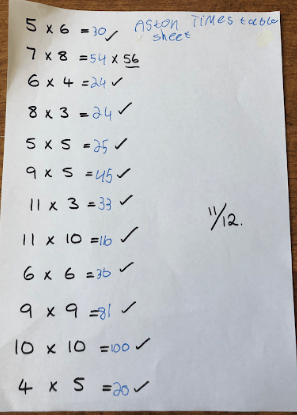 5 x 6 = 30 ✓ Aston Times table
sheet
7 x 8 = 54 x 56
6 x 4 = 24 ✓
8 x 3 = 24 ✓
5 x 5 = 25 ✓
9 x 5 = 45 ✓
11 x 3 = 33 ✓
11 x 10 = 110 ✓
11/12.
6 x 6 = 36 ✓
9 x 9 = 81 ✓
10 x 10 = 100 ✓
4 x 5 = 20 ✓